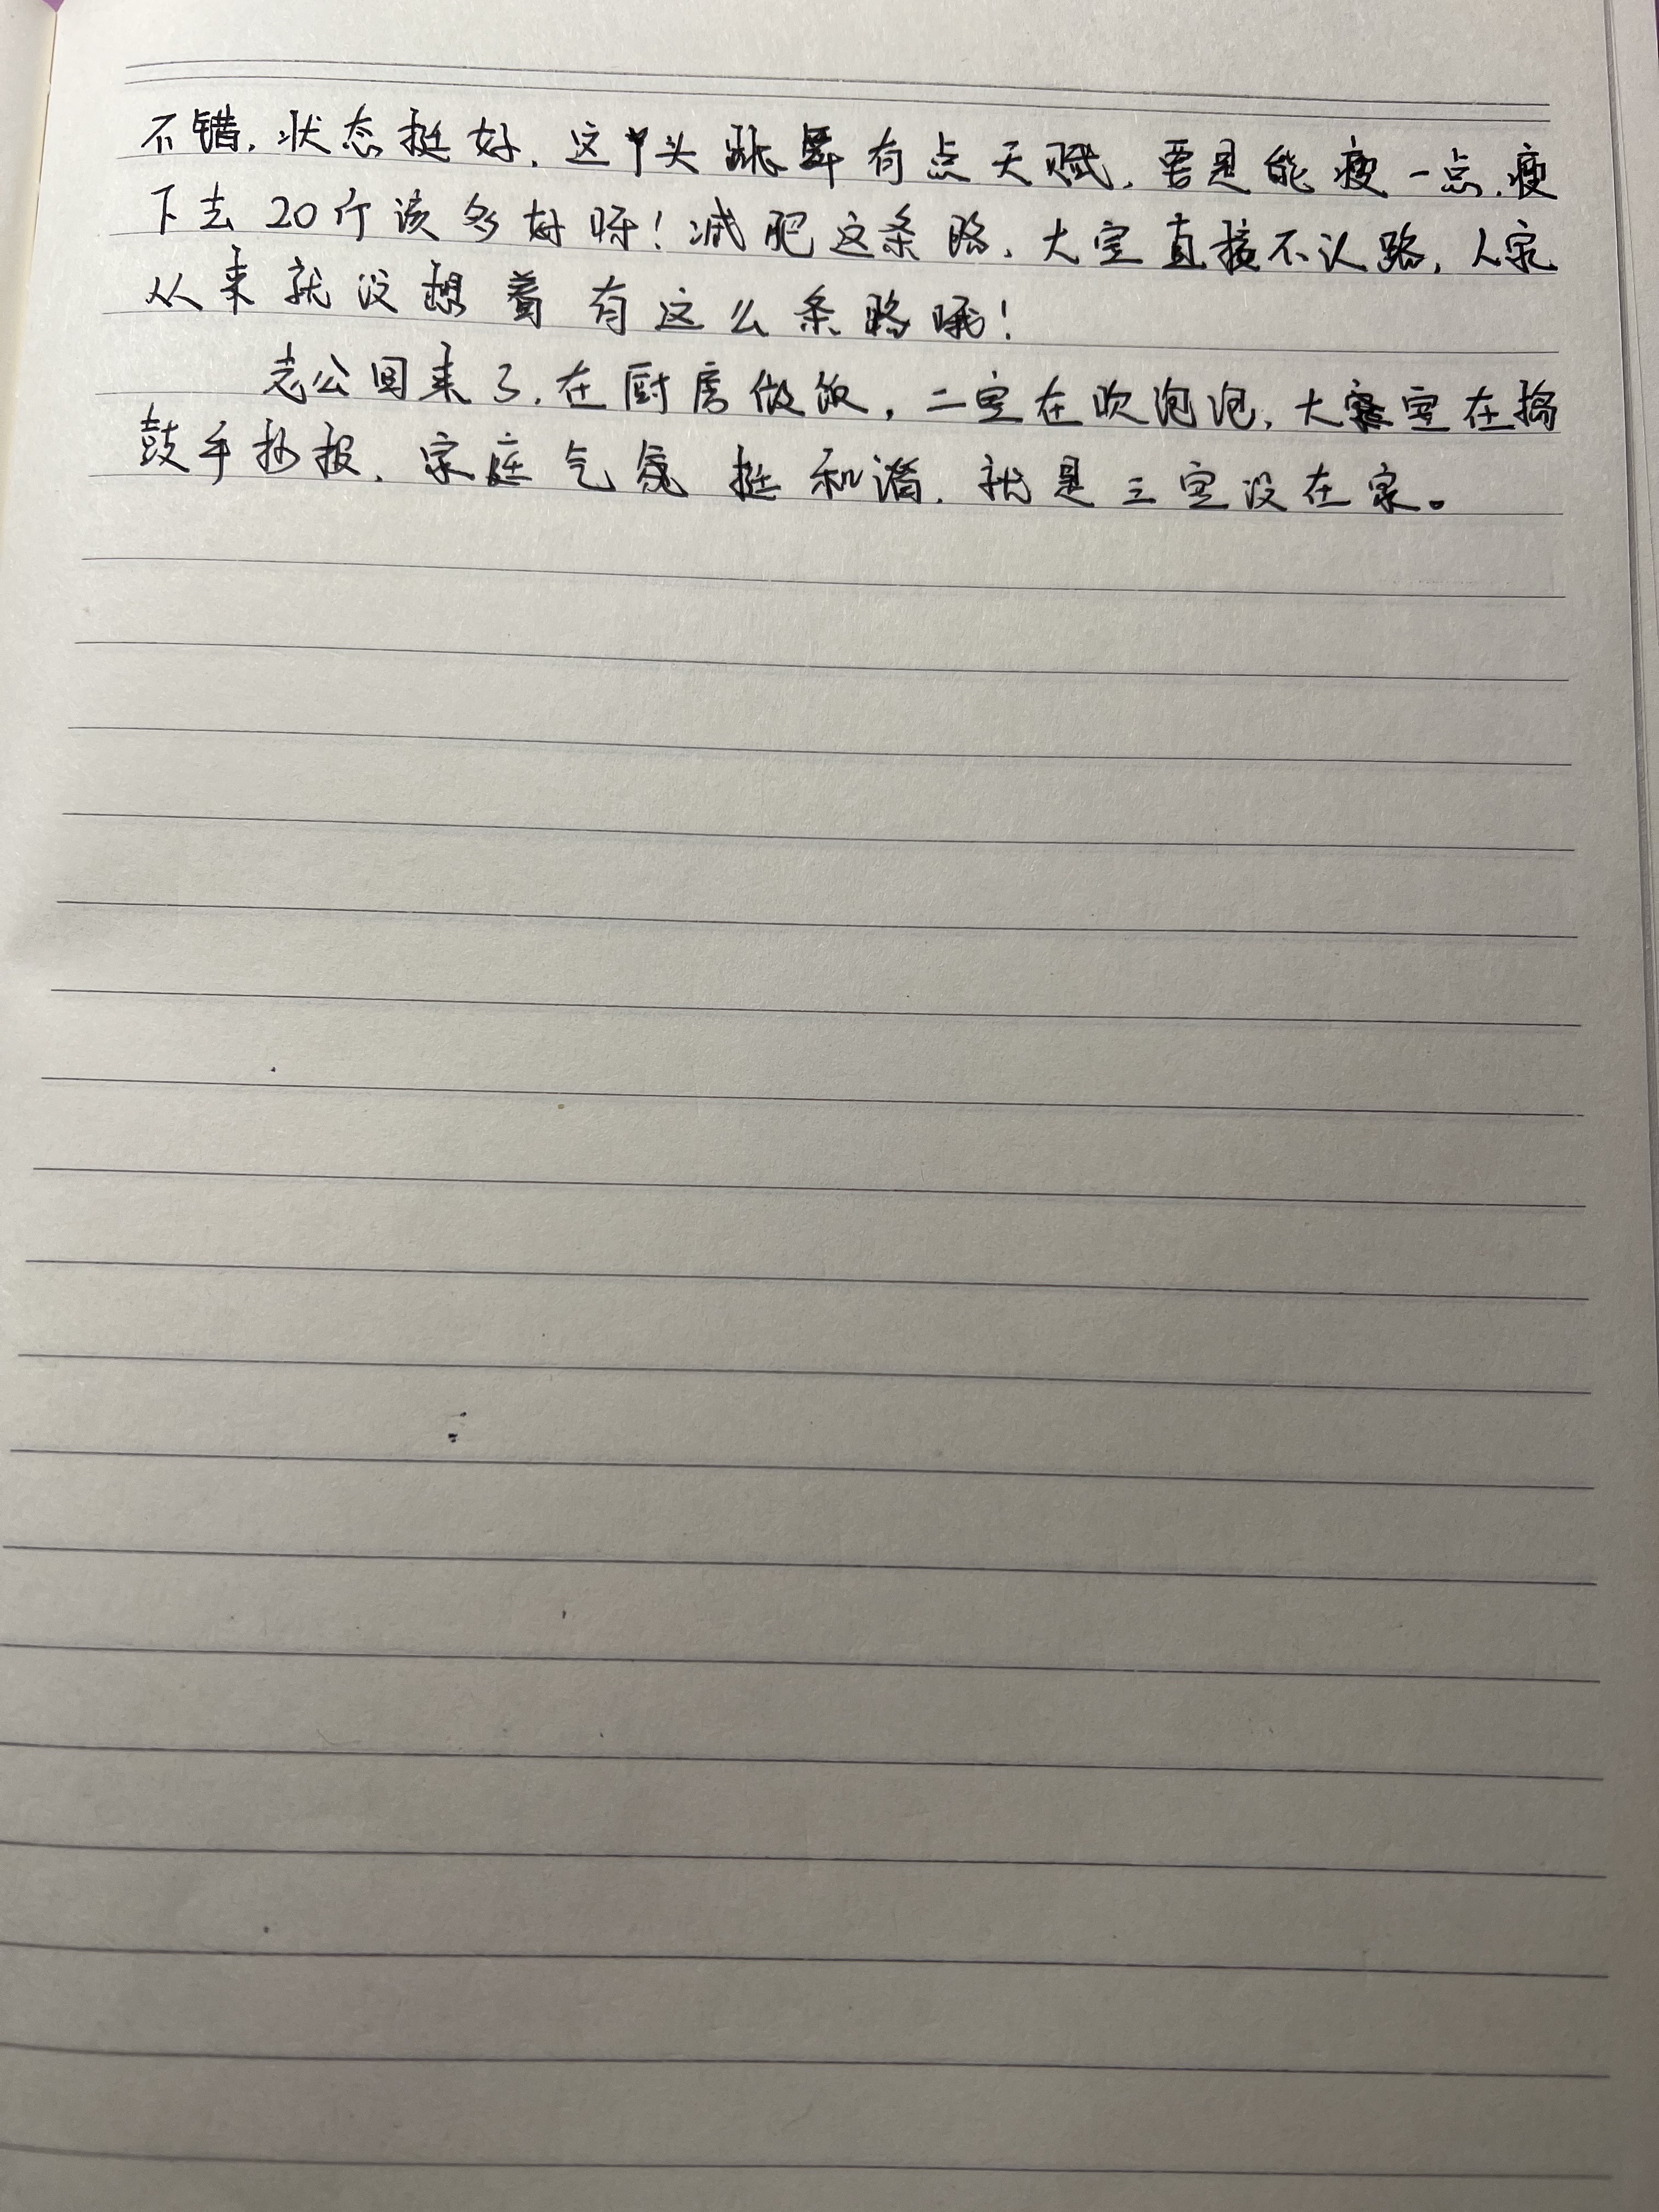 不错，状态挺好，这丫头跳舞有点天赋，要是能瘦一点，瘦
下去20斤该多好呀！减肥这条路，大宝直接不认路，人家
从来就没想着有这么条路哦！
老公回来了，在厨房做饭，二宝在吹泡泡，大宝在捣
鼓手抄报，家庭气氛挺和谐，就是三宝没在家。